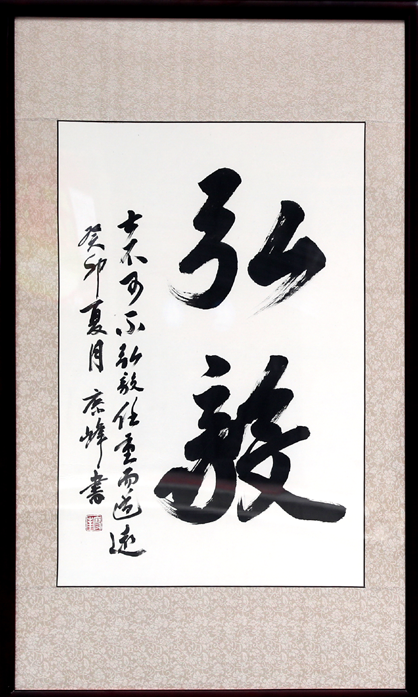 弘毅
士不可不弘毅任重而道远
癸卯夏月京峰书